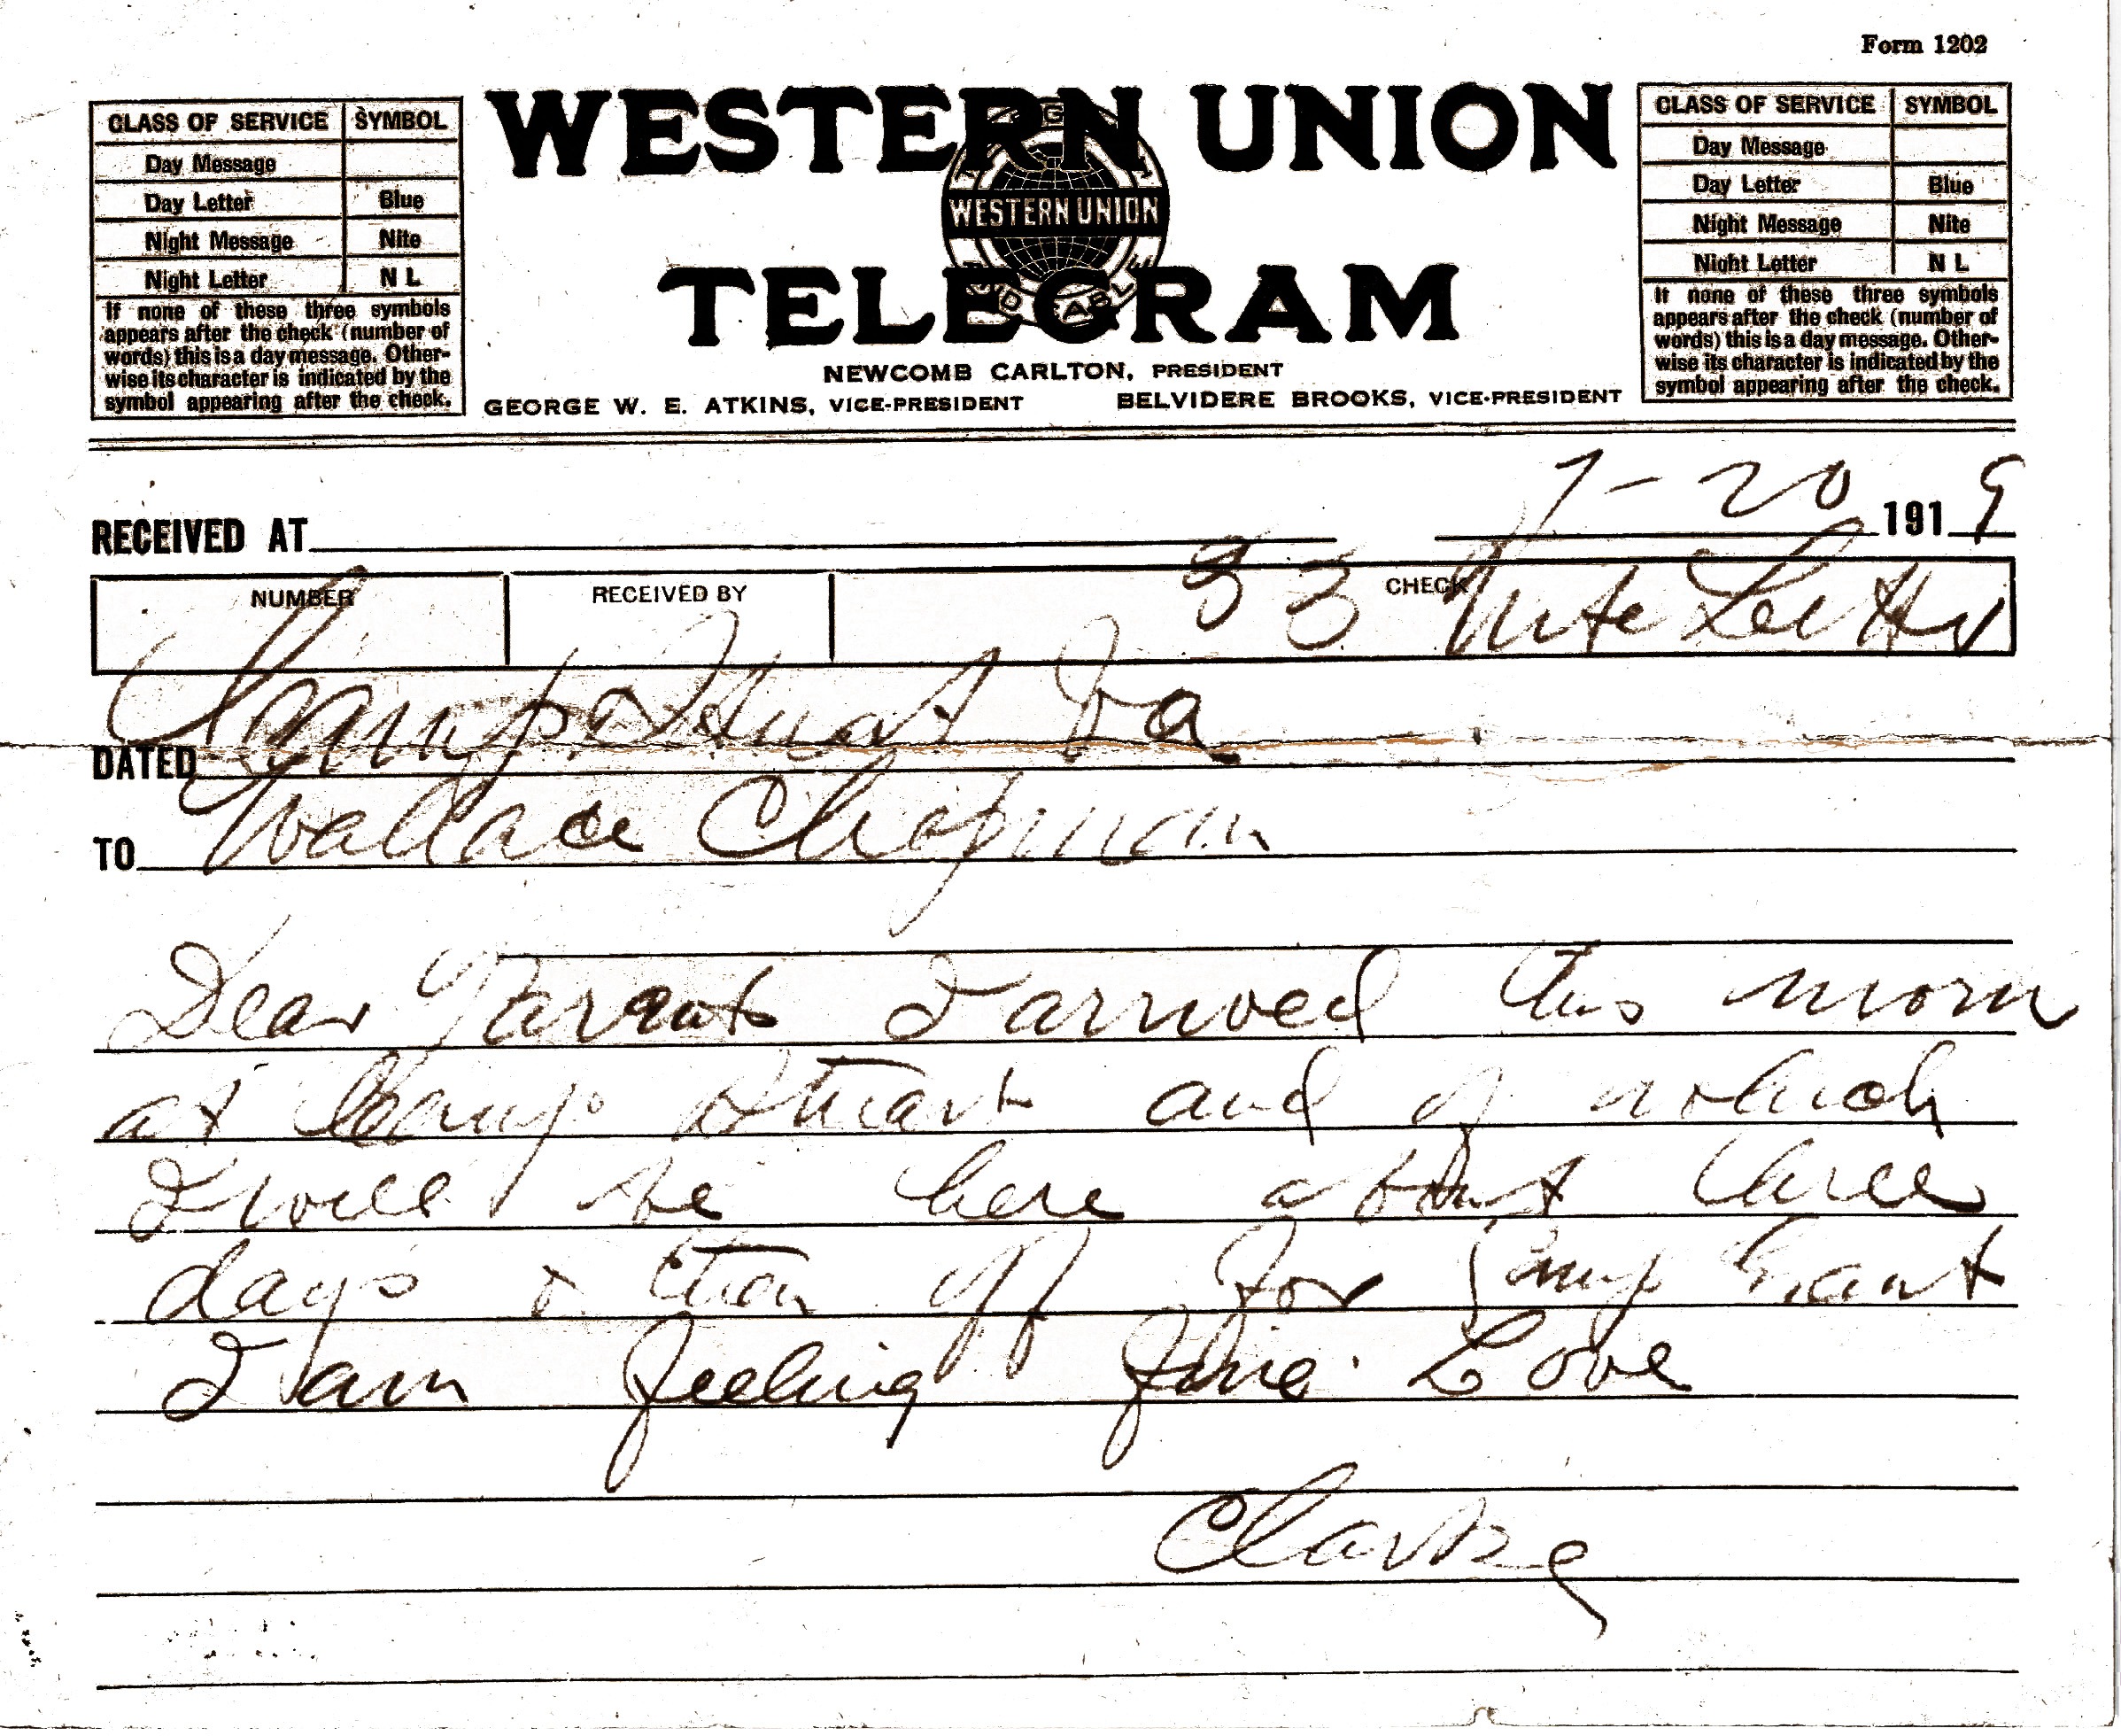 Form 1202
CLASS OF SERVICE SYMBOL
Day Message
Day Letter Blue
Night Message Nite
Night Letter N L
If none of these three symbols
appears after the check (number of
words) this is a day message. Other-
wise its character is indicated by the
symbol appearing after the check.
WESTERN UNION
WESTERN UNION
TELEGRAM
NEWCOMB CARLTON, PRESIDENT
GEORGE W. E. ATKINS, VICE-PRESIDENT BELVIDERE BROOKS, VICE-PRESIDENT
CLASS OF SERVICE SYMBOL
Day Message
Day Letter Blue
Night Message Nite
Night Letter N L
If none of these three symbols
appears after the check (number of
words) this is a day message. Other-
wise its character is indicated by the
symbol appearing after the check.
RECEIVED AT 7-20 1919
NUMBER RECEIVED BY 33 CHECK Nite Letter
DATED Camp Stuart Va
TO Wallace Chapman
Dear Parents I arrived this morn
at Camp Stuart and of which
I will be here about three
days & then off for Camp Grant
I am feeling fine. Love
Clarke